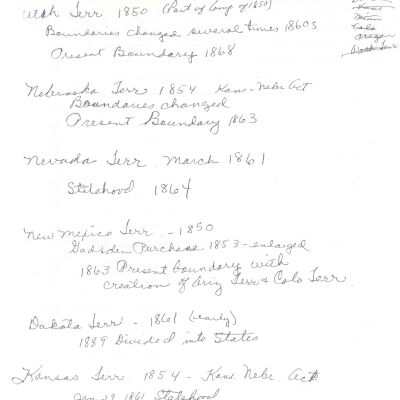 Utah Terr 1850 (Part of Comp of 1850)
Boundaries changed several times 1860s
Present Boundary 1868
Kans
Minn
Colo
Oregon
Wash Terr
Nebraska Terr 1854 Kans-Nebr Act
Boundaries changed
Present Boundary 1863
Nevada Terr. March 1861
Statehood 1864
New Mexico Terr. - 1850
Gadsden Purchase 1853 - enlarged
1863 Present boundary with
creation of Ariz Terr & Colo Terr.
Dakota Terr - 1861 (early)
1889 Divided into States
Kansas Terr. 1854 - Kans. Nebr. Act
Jan 29 1861 Statehood